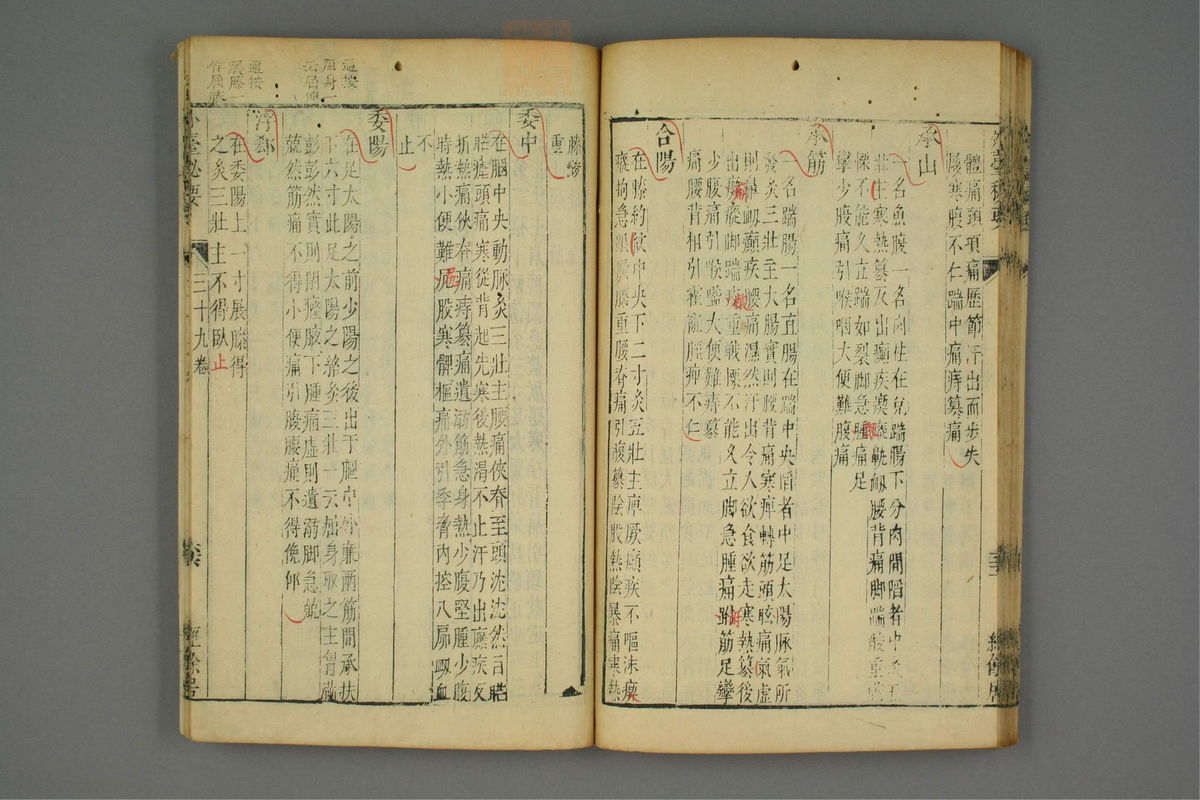 體痛頭項痛歷節汗出而步失
履寒腹不仁踹中痛痔篡痛
承山
一名魚腹一名肉柱在兌踹腸下分肉間陷者中灸五
壯主寒熱篡反出
慄不能久立踹如裂脚急腫痛足
攣少腹痛引喉咽大便難腹痛
承筋
一名踹腸一名直腸在踹中央陷者中足太陽脉氣所
發灸三壯主大腸實則腰背痛寒痺轉筋頭眩痛氣虛
則鼻衂癲疾腰痛濕然汗出令人欲食欲走寒熱篡後
出瘈瘲脚踹痠重戰慄不能久立脚急腫痛跗筋足攣
少腹痛引喉嗌大便難痔篡
痛腰背相引霍亂脛痺不仁
合陽
在膝約紋中央下二寸灸五壯主痺厥癲疾不嘔沫瘈
瘲拘急跟厥膝重腰脊痛引腹篡陰股熱陰暴痛寒熱
膝痠
重
委中
在膕中央動脉灸三壯主腰痛俠脊至頭沈沈然目
瘧頭痛寒從背起先寒後熱渴不止汗乃出癃疾久
折熱痛俠脊痛痔篡痛遺溺筋急身熱少腹堅腫少腹
時熱小便難尻股寒髀樞痛外引季脅內控八窌衂血
不
止
委陽
在足太陽之前少陽之後出于膕中外廉兩筋間承扶
下六寸此足太陽之絡灸三壯一云屈身取之主胷滿
彭彭然實則閉癃腋下腫痛虛則遺溺脚急兢
兢然筋痛不得小便痛引腹腰痛不得俛仰
浮郄
在委陽上一寸展膝得
之灸三壯主不得臥止
三十九卷
經餘居